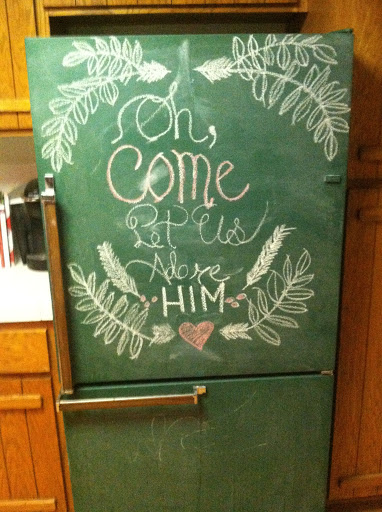 Oh,
Come
Let Us
Adore
HIM